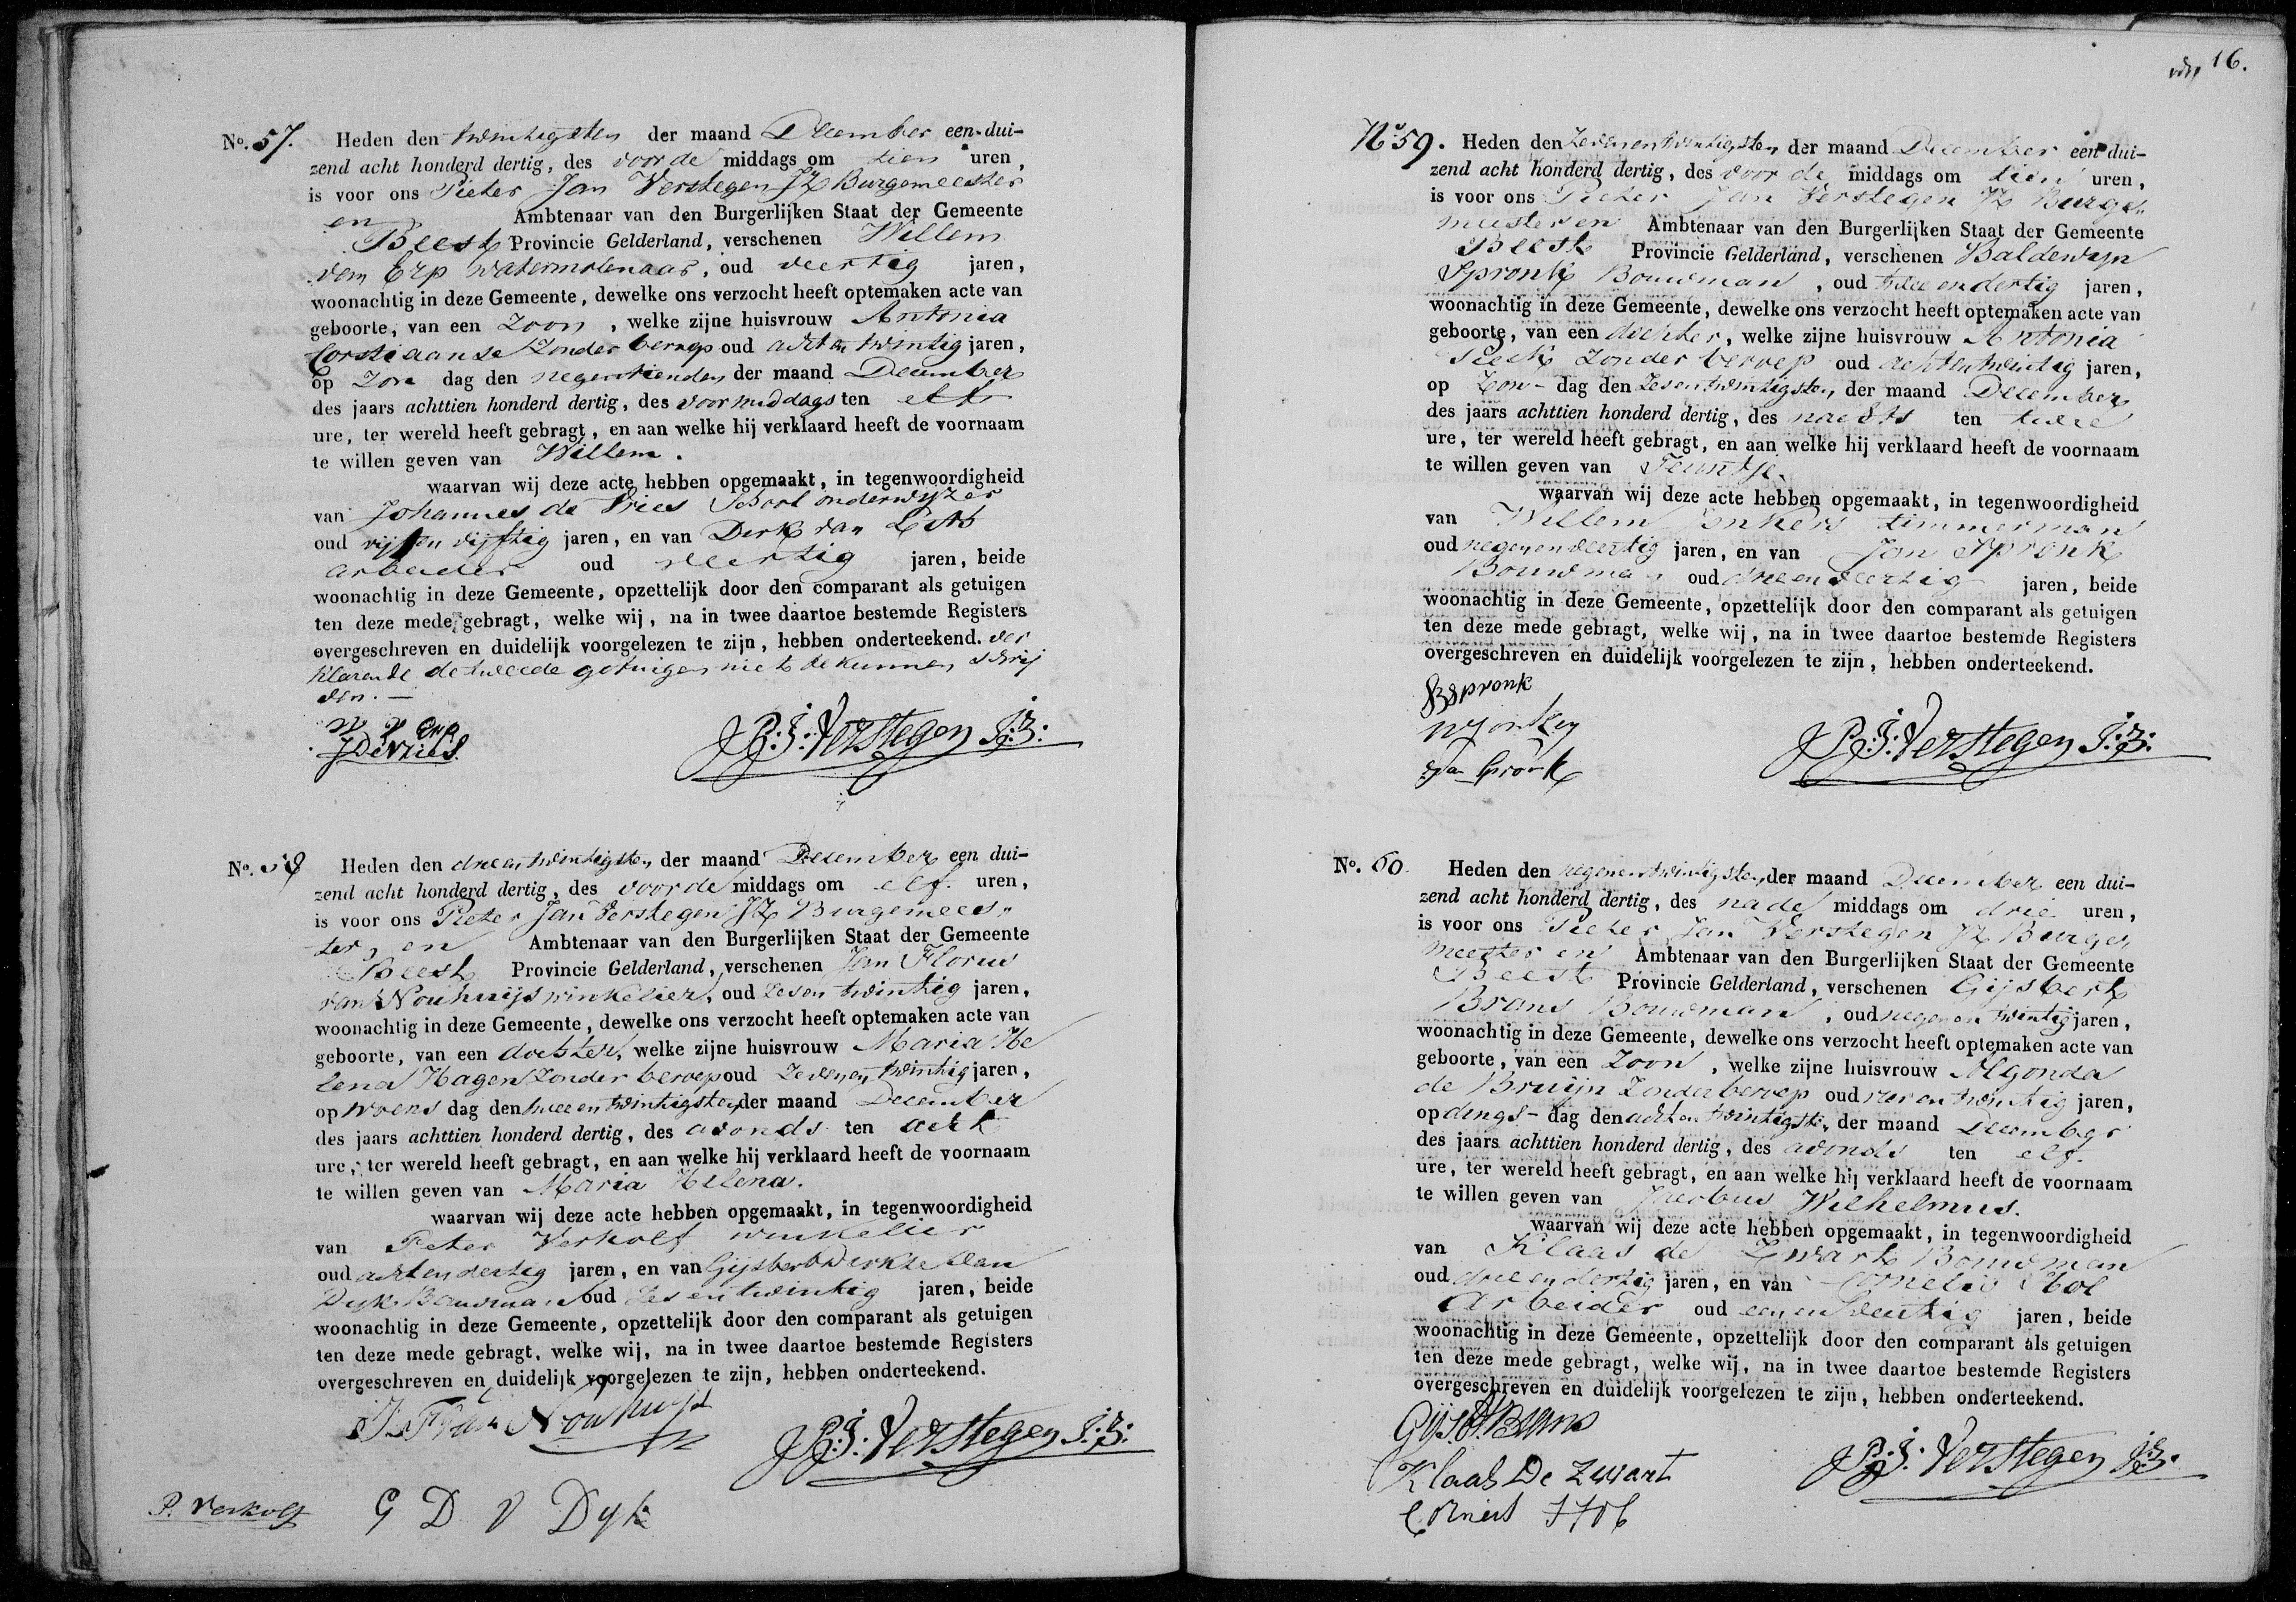 No. 57. Heden den twintigsten der maand December een dui-
zend acht honderd dertig, des voor de middags om tien uren,
is voor ons Pieter Jan Verstegen JZ Burgemeester
en Ambtenaar van den Burgerlijken Staat der Gemeente
Beest Provincie Gelderland, verschenen Willem
van Erp watermolenaar, oud veertig jaren,
woonachtig in deze Gemeente, dewelke ons verzocht heeft optemaken acte van
geboorte, van een Zoon, welke zijne huisvrouw Antonia
Corstiaanse Zonder beroep oud acht en twintig jaren,
op Zon dag den negentienden der maand December
des jaars achttien honderd dertig, des voormiddags ten elf
ure, ter wereld heeft gebragt, en aan welke hij verklaard heeft de voornaam
te willen geven van Willem.
waarvan wij deze acte hebben opgemaakt, in tegenwoordigheid
van Johannes de Vries School onderwijzer
oud vijf en vijftig jaren, en van Derk van
arbeider oud veertig jaren, beide
woonachtig in deze Gemeente, opzettelijk door den comparant als getuigen
ten deze mede gebragt, welke wij, na in twee daartoe bestemde Registers
overgeschreven en duidelijk voorgelezen te zijn, hebben onderteekend. ver
klarende de tweede getuigen niet te kunnen schrij
ven. —
W v Erp
J De Vries
P: J: Verstegen J: Z:
No. 58 Heden den drieentwintigsten der maand December een dui-
zend acht honderd dertig, des voor de middags om elf uren,
is voor ons Pieter Jan Verstegen JZ Burgemees-
ter, en Ambtenaar van den Burgerlijken Staat der Gemeente
Beest Provincie Gelderland, verschenen Jan Florus
van Nouhuijs winkelier, oud zesentwintig jaren,
woonachtig in deze Gemeente, dewelke ons verzocht heeft optemaken acte van
geboorte, van een dochter, welke zijne huisvrouw Maria He
lena Hagen Zonder beroep oud Zevenentwintig jaren,
op woens dag den tweeentwintigsten der maand December
des jaars achttien honderd dertig, des avonds ten acht
ure, ter wereld heeft gebragt, en aan welke hij verklaard heeft de voornaam
te willen geven van Maria Helena.
waarvan wij deze acte hebben opgemaakt, in tegenwoordigheid
van Peter Verkolf winkelier
oud achtendertig jaren, en van Gijsbert Derkse van
Dyk Bouwman oud Zesentwintig jaren, beide
woonachtig in deze Gemeente, opzettelijk door den comparant als getuigen
ten deze mede gebragt, welke wij, na in twee daartoe bestemde Registers
overgeschreven en duidelijk voorgelezen te zijn, hebben onderteekend.
J. F. van Nouhuijs
P: J: Verstegen J: Z:
P. Verkolf G D V Dyk
16.
No 59. Heden den Zevenentwintigsten der maand December een dui-
zend acht honderd dertig, des voor de middags om tien uren,
is voor ons Pieter Jan Verstegen JZ Burge-
meester en Ambtenaar van den Burgerlijken Staat der Gemeente
Beest Provincie Gelderland, verschenen Baldewyn
Spronk Bouwman, oud twee en dertig jaren,
woonachtig in deze Gemeente, dewelke ons verzocht heeft optemaken acte van
geboorte, van een dochter, welke zijne huisvrouw Antonia
Zonder beroep oud achtentwintig jaren,
op Zon- dag den Zesentwintigsten der maand December
des jaars achttien honderd dertig, des nachts ten twee
ure, ter wereld heeft gebragt, en aan welke hij verklaard heeft de voornaam
te willen geven van Teuntje.
waarvan wij deze acte hebben opgemaakt, in tegenwoordigheid
van Willem Jonkers timmerman
oud negenenveertig jaren, en van Jan Spronk
Bouwman oud drieenveertig jaren, beide
woonachtig in deze Gemeente, opzettelijk door den comparant als getuigen
ten deze mede gebragt, welke wij, na in twee daartoe bestemde Registers
overgeschreven en duidelijk voorgelezen te zijn, hebben onderteekend.
B Spronk
W Jonkers
Jan Spronk
P: J: Verstegen J: Z:
No. 60. Heden den negenentwintigsten der maand December een dui-
zend acht honderd dertig, des na de middags om drie uren,
is voor ons Pieter Jan Verstegen JZ Burge
meester en Ambtenaar van den Burgerlijken Staat der Gemeente
Beest Provincie Gelderland, verschenen Gijsbert
Brans Bouwman, oud negen en twintig jaren,
woonachtig in deze Gemeente, dewelke ons verzocht heeft optemaken acte van
geboorte, van een Zoon, welke zijne huisvrouw Algonda
de Bruijn Zonder beroep oud vier en twintig jaren,
op dings- dag den achtentwintigsten der maand December
des jaars achttien honderd dertig, des avonds ten elf
ure, ter wereld heeft gebragt, en aan welke hij verklaard heeft de voornaam
te willen geven van Wilhelmus.
waarvan wij deze acte hebben opgemaakt, in tegenwoordigheid
van Klaas de Zwart Bouwman
oud drieendertig jaren, en van Cornelis
Arbeider oud jaren, beide
woonachtig in deze Gemeente, opzettelijk door den comparant als getuigen
ten deze mede gebragt, welke wij, na in twee daartoe bestemde Registers
overgeschreven en duidelijk voorgelezen te zijn, hebben onderteekend.
Gijsbt Brans
Klaas De Zwart
P: J: Verstegen J: Z: